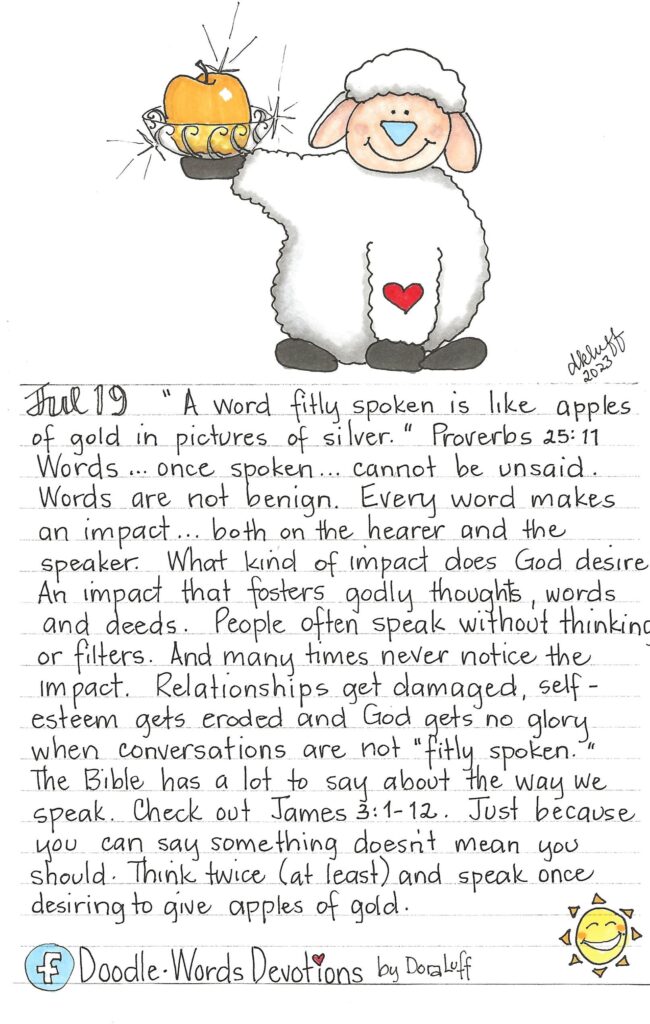 dkluff
2023
Jul 19 "A word fitly spoken is like apples
of gold in pictures of silver." Proverbs 25:11
Words... once spoken... cannot be unsaid.
Words are not benign. Every word makes
an impact... both on the hearer and the
speaker. What kind of impact does God desire
An impact that fosters godly thoughts, words
and deeds. People often speak without thinking
or filters. And many times never notice the
impact. Relationships get damaged, self-
esteem gets eroded and God gets no glory
when conversations are not "fitly spoken."
The Bible has a lot to say about the way we
speak. Check out James 3:1-12. Just because
you can say something doesn't mean you
should. Think twice (at least) and speak once
desiring to give apples of gold.
f Doodle-Words Devotions by Dora Luff